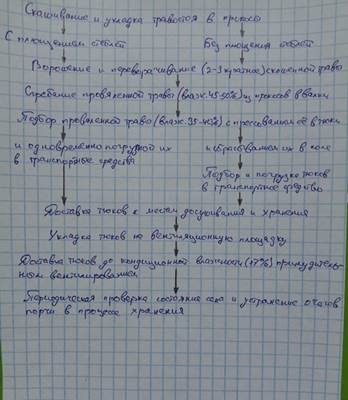 Скашивание и укладка травостоя в прокосы
С плющением стеблей
Без плющения стеблей
Ворошение и переворачивание (2-3 кратное) скошенной травы
Сгребание провяленной травы (влаж. 45-50%) из прокосов в валки
Подбор провяленной травы (влаж. 35-40%) с прессованием её в тюки
и одновременной погрузкой их
в транспортные средства
и сбрасыванием их в поле
Подбор и погрузка тюков
в транспортное средство
Доставка тюков к местам досушивания и хранения
Укладка тюков на вентиляционную площадку
Доставка тюков до кондиционной влажности (17%) принудитель-
ным вентилированием
Периодическая проверка состояния сена и устранение очагов
порчи в процессе хранения